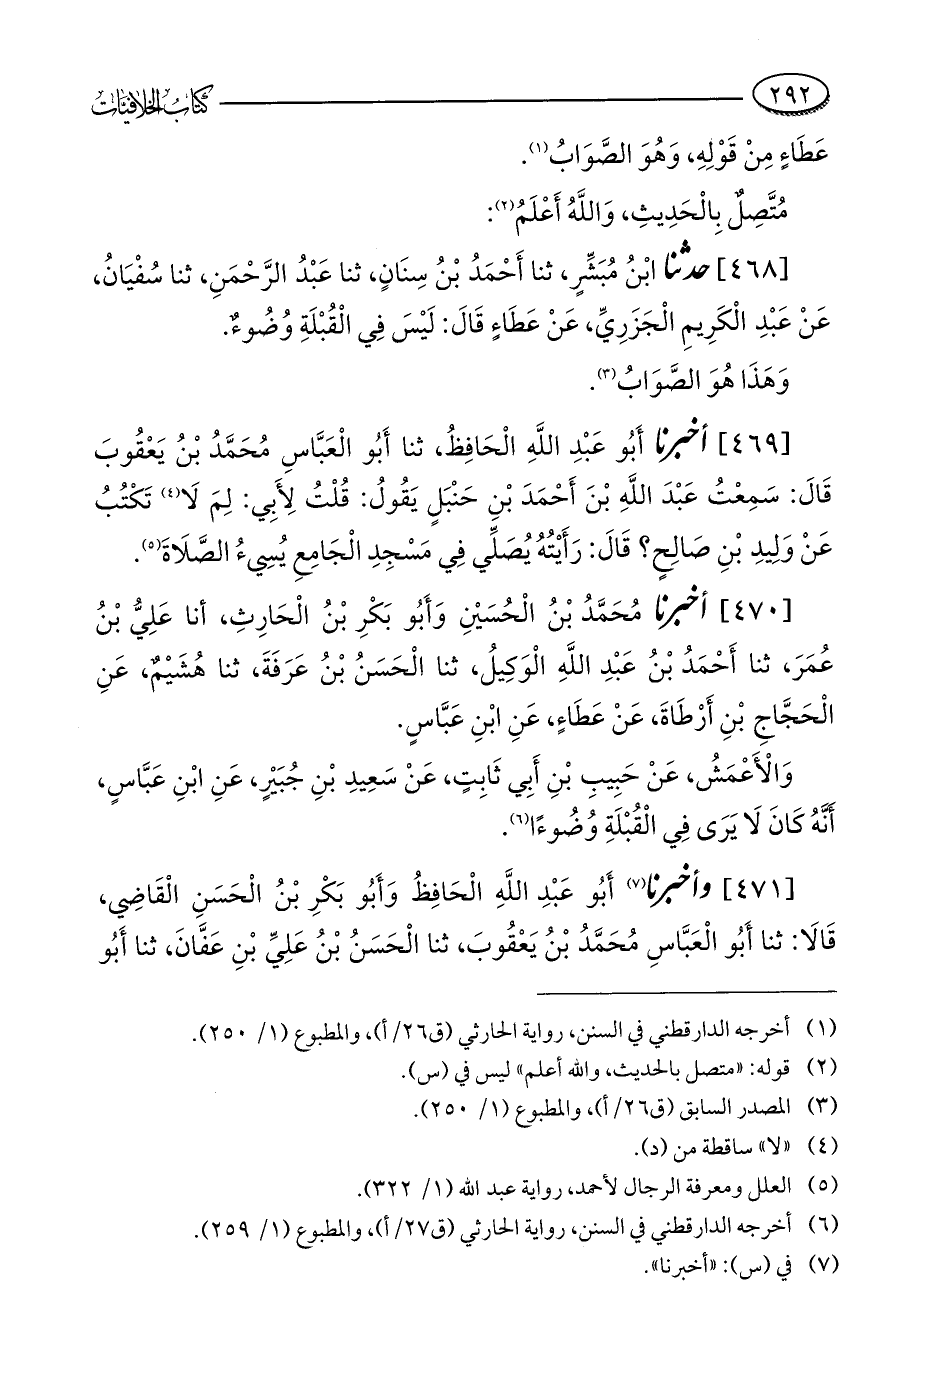 ٢٩٢ كتاب الخلافيات
عَطَاءٍ مِنْ قَوْلِهِ، وَهُوَ الصَّوَابُ(١).
مُتَّصِلٌ بِالْحَدِيثِ، وَاللَّهُ أَعْلَمُ(٢):
[٤٦٨] حدثنا ابْنُ مُبَشِّرٍ، ثنا أَحْمَدُ بْنُ سِنَانٍ، ثنا عَبْدُ الرَّحْمَنِ، ثنا سُفْيَانُ،
عَنْ عَبْدِ الْكَرِيمِ الْجَزَرِيِّ، عَنْ عَطَاءٍ قَالَ: لَيْسَ فِي الْقُبْلَةِ وُضُوءٌ.
وَهَذَا هُوَ الصَّوَابُ(٣).
[٤٦٩] أخبرنا أَبُو عَبْدِ اللَّهِ الْحَافِظُ، ثنا أَبُو الْعَبَّاسِ مُحَمَّدُ بْنُ يَعْقُوبَ
قَالَ: سَمِعْتُ عَبْدَ اللَّهِ بْنَ أَحْمَدَ بْنِ حَنْبَلٍ يَقُولُ: قُلْتُ لِأَبِي: لِمَ لَا(٤) تَكْتُبُ
عَنْ وَلِيدِ بْنِ صَالِحٍ؟ قَالَ: رَأَيْتُهُ يُصَلِّي فِي مَسْجِدِ الْجَامِعِ يُسِيءُ الصَّلَاةَ(٥).
[٤٧٠] أخبرنا مُحَمَّدُ بْنُ الْحُسَيْنِ وَأَبُو بَكْرِ بْنُ الْحَارِثِ، أنا عَلِيُّ بْنُ
عُمَرَ، ثنا أَحْمَدُ بْنُ عَبْدِ اللَّهِ الْوَكِيلُ، ثنا الْحَسَنُ بْنُ عَرَفَةَ، ثنا هُشَيْمٌ، عَنِ
الْحَجَّاجِ بْنِ أَرْطَاةَ، عَنْ عَطَاءٍ، عَنِ ابْنِ عَبَّاسٍ.
وَالْأَعْمَشُ، عَنْ حَبِيبِ بْنِ أَبِي ثَابِتٍ، عَنْ سَعِيدِ بْنِ جُبَيْرٍ، عَنِ ابْنِ عَبَّاسٍ،
أَنَّهُ كَانَ لَا يَرَى فِي الْقُبْلَةِ وُضُوءًا(٦).
[٤٧١] وأخبرنا(٧) أَبُو عَبْدِ اللَّهِ الْحَافِظُ وَأَبُو بَكْرِ بْنُ الْحَسَنِ الْقَاضِي،
قَالَا: ثنا أَبُو الْعَبَّاسِ مُحَمَّدُ بْنُ يَعْقُوبَ، ثنا الْحَسَنُ بْنُ عَلِيِّ بْنِ عَفَّانَ، ثنا أَبُو
(١) أخرجه الدارقطني في السنن، رواية الحارثي (ق٢٦/ أ)، والمطبوع (١/ ٢٥٠).
(٢) قوله: «متصل بالحديث، والله أعلم» ليس في (س).
(٣) المصدر السابق (ق٢٦/ أ)، والمطبوع (١/ ٢٥٠).
(٤) «لا» ساقطة من (د).
(٥) العلل ومعرفة الرجال لأحمد، رواية عبد الله (١/ ٣٢٢).
(٦) أخرجه الدارقطني في السنن، رواية الحارثي (ق٢٧/ أ)، والمطبوع (١/ ٢٥٩).
(٧) في (س): «أخبرنا».